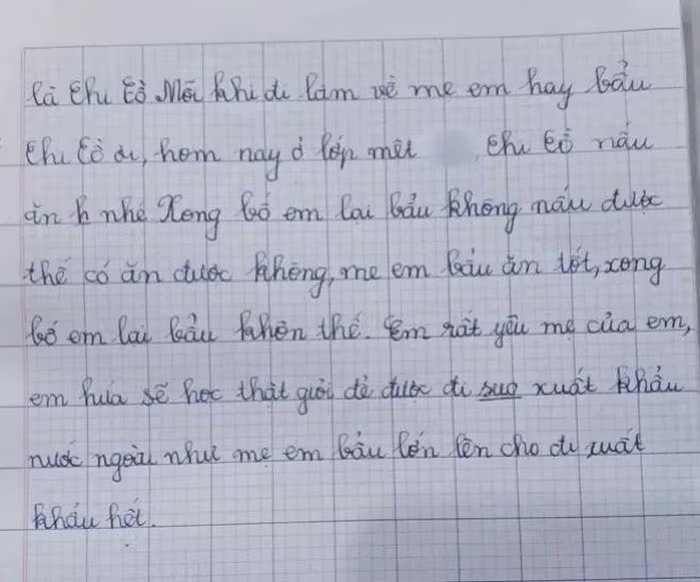 là thị tồ Mỗi khi đi làm về mẹ em hay bẩu
thị tồ ơi, hom nay ở lớp mêt , thị tồ nấu
ăn h nhé Xong bố em lại bẩu không nấu được
thế có ăn được không, mẹ em bẩu ăn tốt, xong
bố em lại bẩu khôn thế. Em rất yêu mẹ của em,
em hưa sẽ học thật giỏi để được đi sug xuất khẩu
nước ngoài như mẹ em bẩu lớn lên cho đi xuất
khẩu hết.